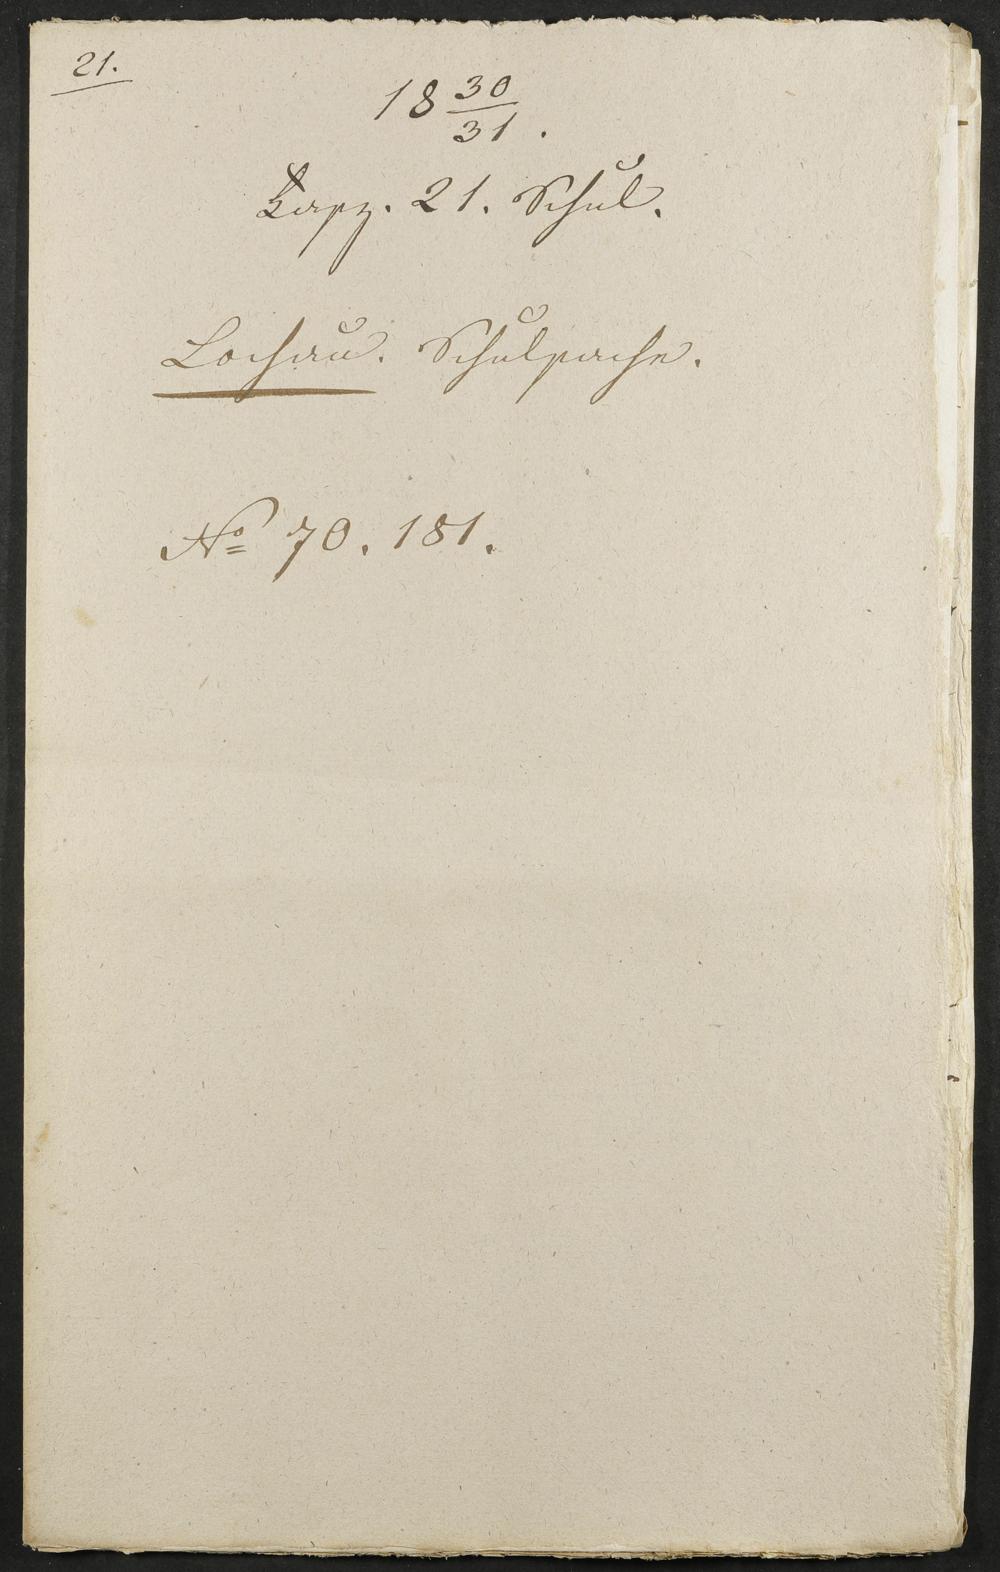 21.
18 30/31.
Fasz. 21. Schul.
Lochau. Schulsache.
No 70. 181.